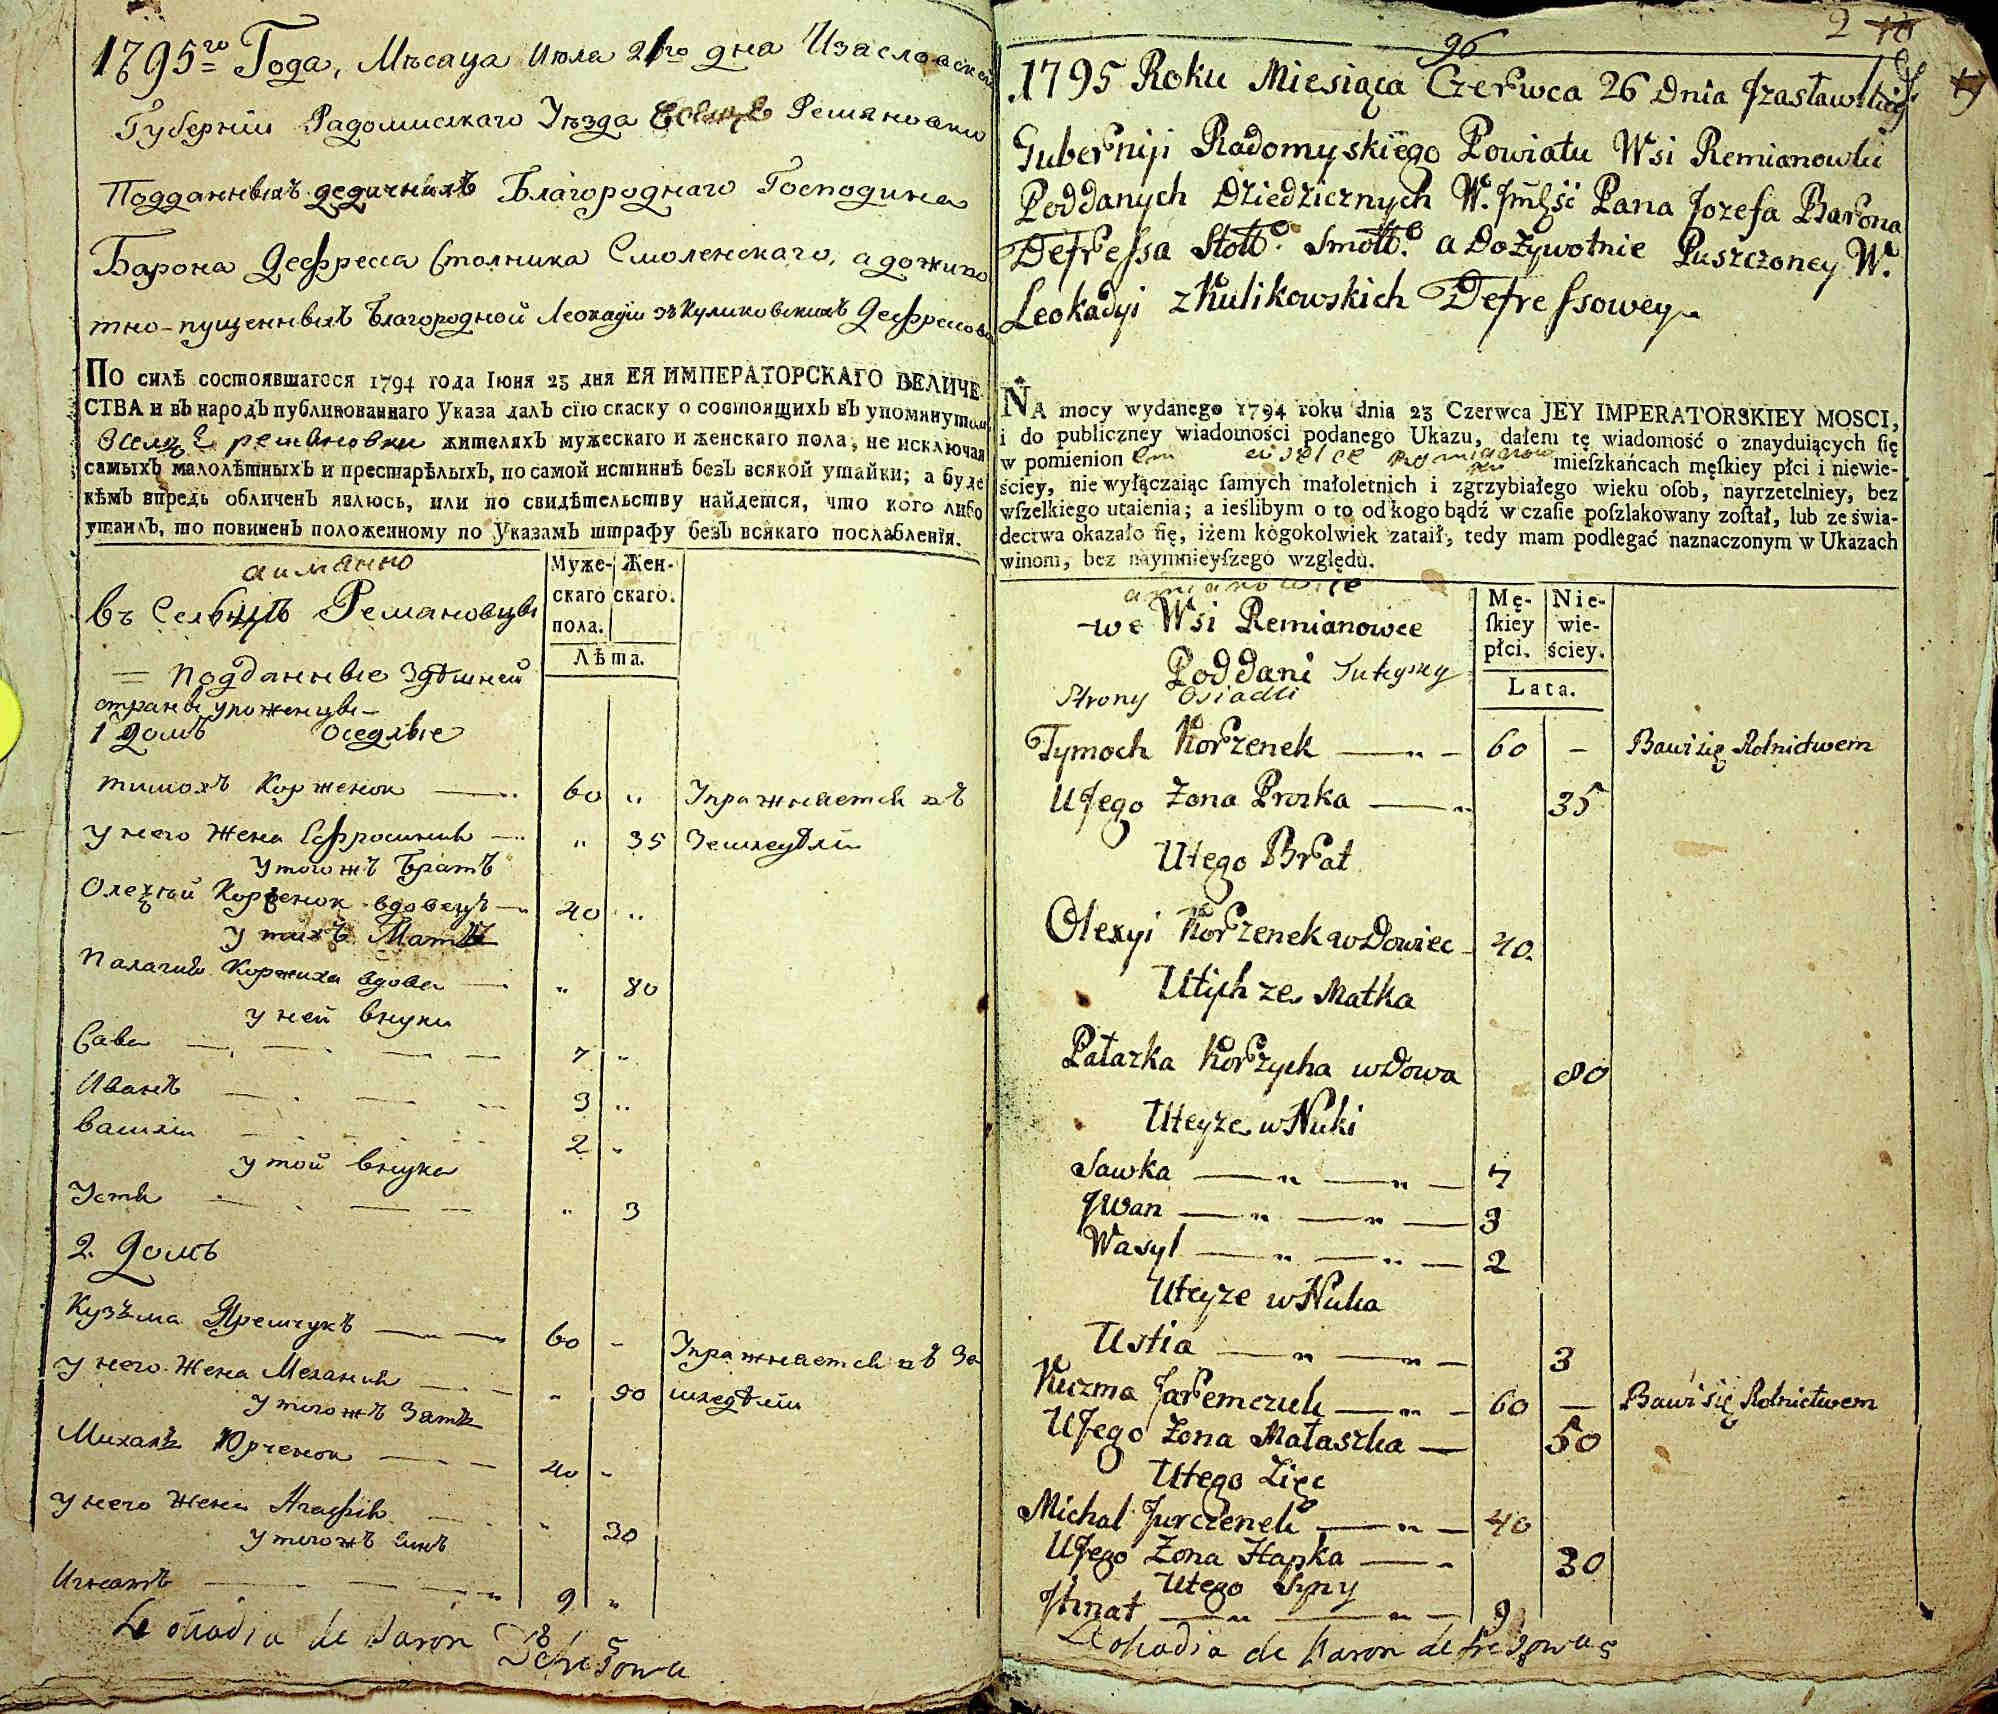 1795го Года, Мѣсаца Июла 21го дна Изаславской
Губерніи Радомисскаго Уезда Ремановки
Подданныхъ дедичныхъ Благороднаго Господина
Барона Дефресса Столника Смоленскаго, а доживо
тно-пущенныхъ Благородной Леокадіи зъ Куликовскихъ Дефресова
ПО силѣ состоявшагося 1794 года Іюня 23 дня ЕЯ ИМПЕРАТОРСКАГО ВЕЛИЧЕ-
СТВА и въ народъ публикованнаго Указа далъ сію скаску о состоящихъ въ упомянутом
селцѣ ремановки жителяхъ мужескаго и женскаго пола, не исключая
самыхъ малолѣтныхъ и престарѣлыхъ, по самой истиннѣ безъ всякой утайки; а буде
кѣмъ впредь обличенъ явлюсь, или по свидѣтельству найдется, что кого либо
утаилъ, то повиненъ положенному по Указамъ штрафу безъ всякаго послабленія.
аиманно
въ Селцѣ Ремановцы
= подданные здѣшней
страны уроженцы-
1 домъ оседлые
Муже- Жен-
скаго скаго.
пола.
Лѣта.
тимохъ Корженок — 60 „ Упражняется въ
у него жена Ефросиния — „ 35 Земледѣлii
у того жъ Братъ
Олексѣй Корженок вдовецъ — 40 „
у тихъ Мать
Палагия Коржиха вдова — „ 80
у ней внуки
Сава — — — 7 „
Иванъ — — — 3 „
василiи — — — 2 „
у той внука
Устя — — — „ 3
2. домъ
Кузьма Яремчукъ — — 60 - Упражняется въ Зе
у него жена Мелания — „ 50 мледѣлiи
у того жъ Зять
Михаль Юрченок — — 40 „
у него жена Агафiя — „ 30
у того жъ синъ
Игнатъ — — — 9 „
Leokadia de Baron Defresowa
96
2 10
1795 Roku Miesiąca Czerwca 26 Dnia Jzasławskiey
Guberniji Radomyskiego Powiatu Wsi Remianowki
Poddanych Dziedzicznych W. Jmść Pana Jozefa Barona
Defressa Stolko. Smolko. a Dożywotnie Puszczoney W.
Leokadyi z Kulikowskich Defressowey
NA mocy wydanego 1794 roku dnia 23 Czerwca JEY IMPERATORSKIEY MOSCI,
i do publiczney wiadomości podanego Ukazu, dałem tę wiadomość o znayduiących ſię
w pomienion em mieſzkańcach męſkiey płci i niewie-
ściey, nie wyłączaiąc ſamych małoletnich i zgrzybiałego wieku oſob, nayrzetelniey, bez
wſzelkiego utaienia; a ieślibym o to od kogo bądź w czaſie poſzlakowany zoſtał, lub ze świa-
dectwa okazało ſię, iżem kogokolwiek zataił, tedy mam podlegać naznaczonym w Ukazach
winom, bez naymnieyſzego względu.
amianowice
we Wsi Remianowce
Poddani Tuteyszy
Strony Osiadli
Mę- Nie-
ſkiey wie-
płci. ściey.
Lata.
Tymoch Korzenek — „ — 60 — Bawi się Rolnictwem
U Jego Żona Proska — „ 35
U tego Brat
Olexyi Korzenek wDowiec - 40.
U tych ze Matka
Palazka Korzycha wDowa 80
U teyze wNuki
Sawka — „ — „ — 7
Jwan — „ — „ — 3
Wasyl — „ — „ — 2
U teyze wNuka
Ustia — „ — „ — 3
Kuzma Jaremczuk — „ — 60 — Bawi się Rolnictwem
U Jego Żona Małaszka — 50
U tego Zięc
Michal Jurczenek — „ — 40
U Jego Żona Hapka — „ 30
U tego Syny
Jhnat — „ — „ — 9
Leokadia de Baron defresowa